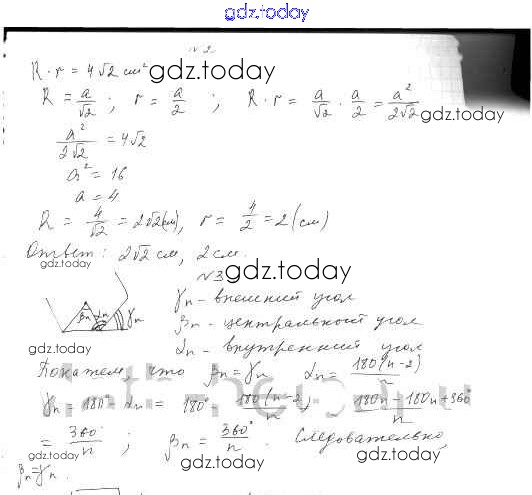 gdz.today
№ 2
R · r = 4√2 см²
gdz.today
R = a/√2 ; r = a/2 ; R · r = a/√2 · a/2 = a²/2√2
gdz.today
a²/2√2 = 4√2
a² = 16
a = 4
R = 4/√2 = 2√2(см), r = 4/2 = 2 (см)
Ответ: 2√2 см, 2 см.
gdz.today
№3
gdz.today
γn - внешний угол
βn αn γn
βn - центральный угол
gdz.today
αn - внутренний угол
gdz.today
Покажем, что βn = γn αn = 180(n-2)/n
γn = 180° - αn = 180° - 180(n-2)/n ; 180n - 180n + 360°/n
= 360°/n ; βn = 360°/n . Следовательно,
gdz.today
gdz.today
βn = γn .